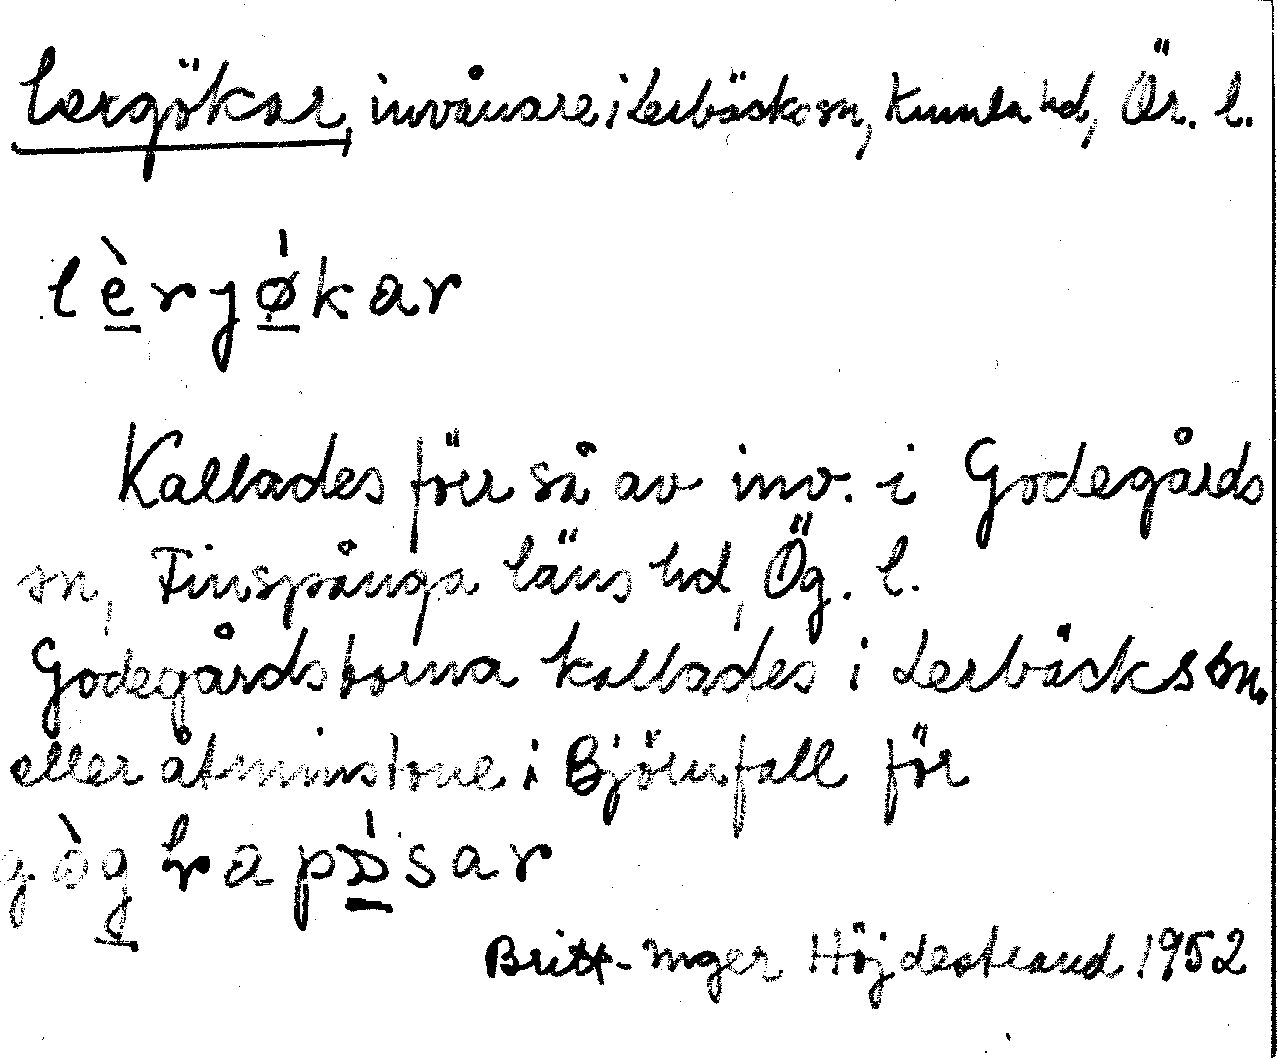 lergökar, invånare i Lerbäcks sn, Kumla hd, Ör. l.
lèrjǿkar
Kallades förr så av inv. i Godegårds
sn, Finspånga läns hd, Ög. l.
Godegårdsborna kallades i Lerbäcks sn.
eller åtminstone i Björnfall för
Britt-Inger Höjdestrand 1952